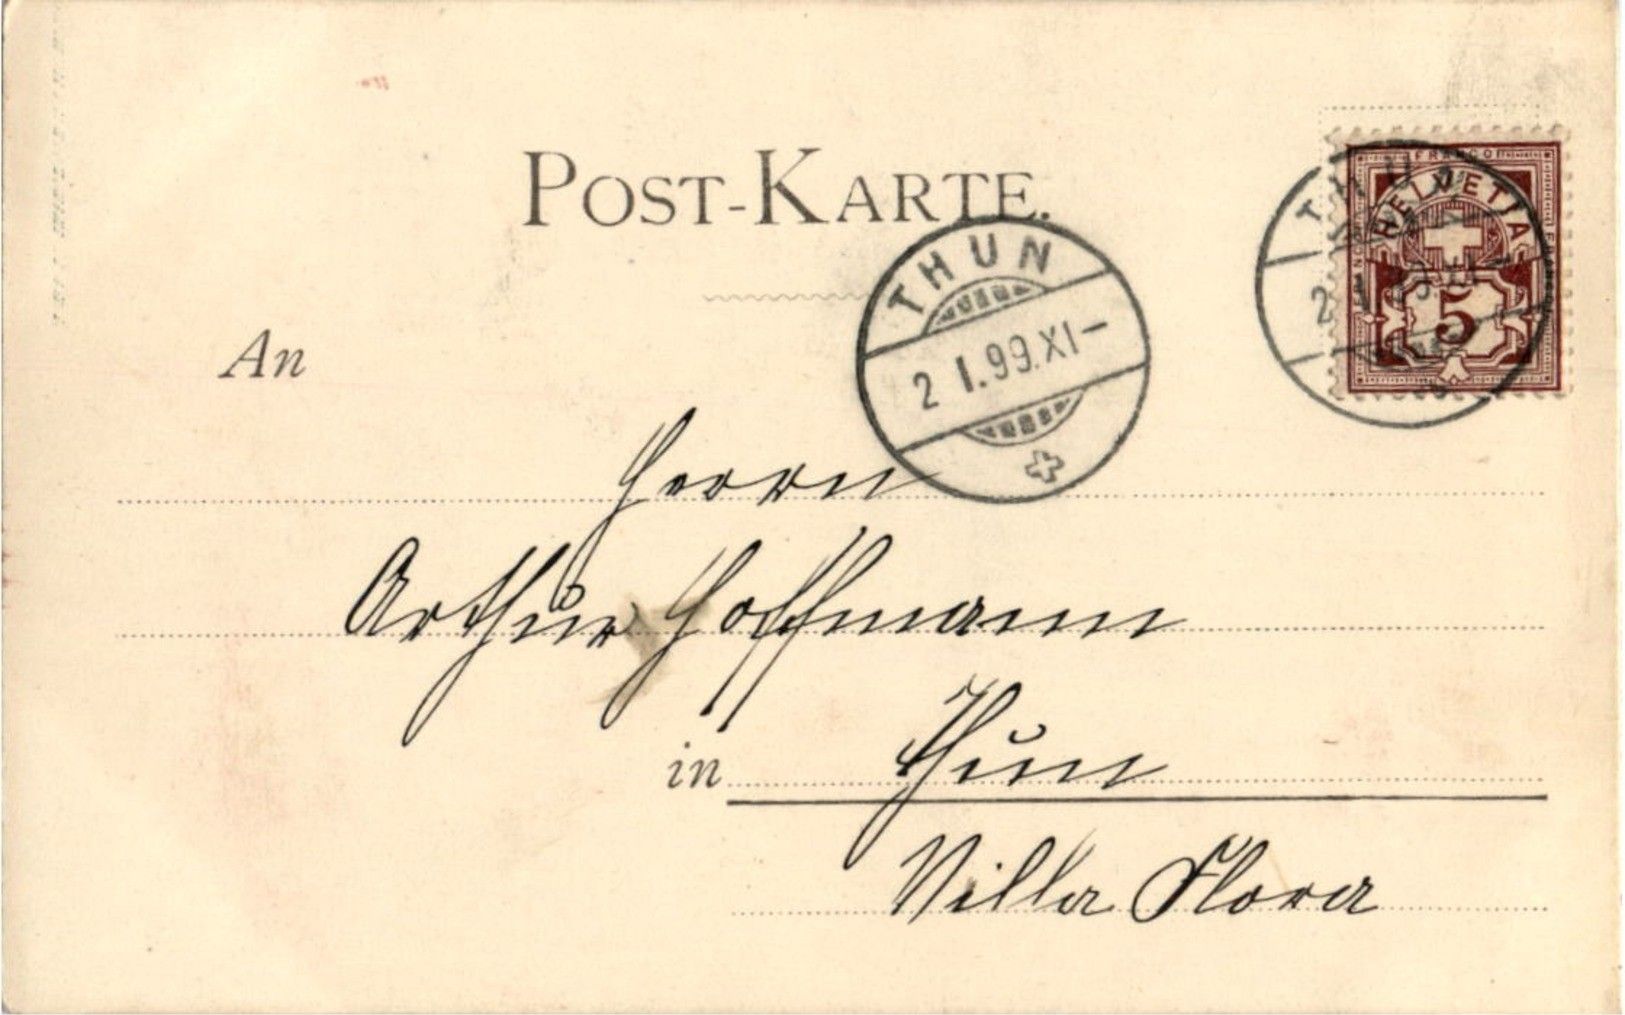 POST-KARTE.
FRANCO
HELVETIA
5
THUN
2 I.99.XI–
THU
2
An
Herrn
Arthur Hoffmann
in Thun
Villa Flora